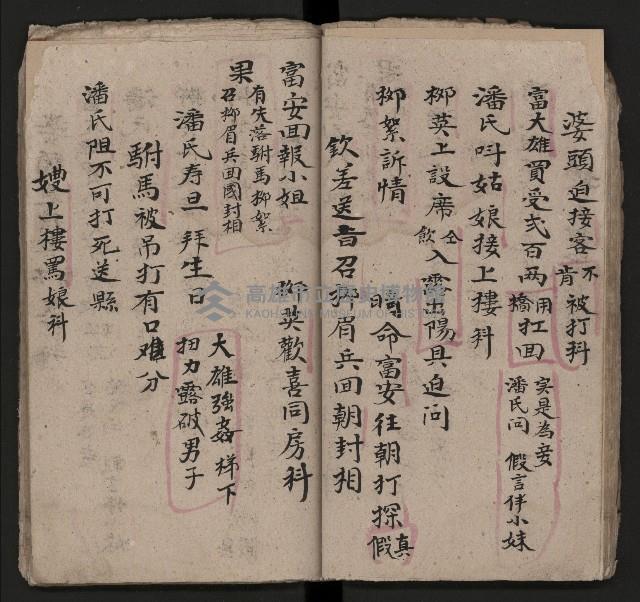 婆頭迫接客不肯被打科
富大雄買受弍百両用橋扛回
实是為妾
潘氏问 假言伴小妹
潘氏呌姑娘接上摟科
柳英上設席仝飲入
陽具迫问
柳絮訴情 嗣命富安往朝打探真假
欽差送旨召柳眉兵回朝封相
富安回報小姐 柳英歡喜同房科
果有失落駙馬柳絮
召柳眉兵回國封相
潘氏寿旦 拜生日 大雄強姦 梯下
扭力露破男子
駙馬被吊打有口难分
潘氏阻不可打死送縣
嫂上摟罵娘科
高雄市立歷史博物館
KAOHSIUNG MUSEUM OF HISTORY